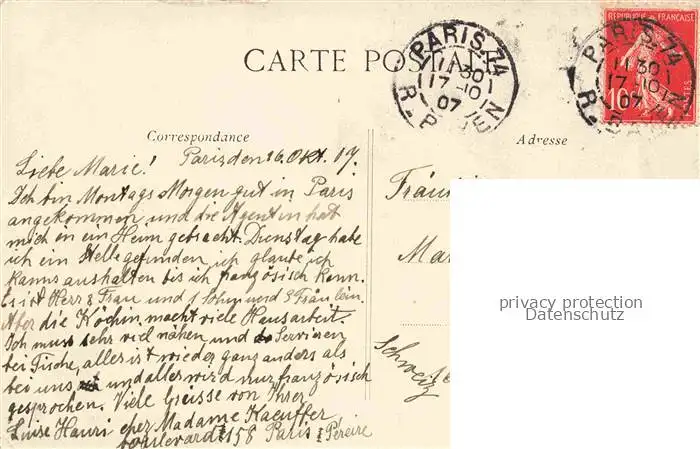 CARTE POSTALE
REPUBLIQUE FRANÇAISE
10
PARIS-74
11 30
17 -10
07
PARIS-74
11 30
17 -10
07
Correspondance
Adresse
Liebe Marie! Paris den 16. Okt. 07.
Ich bin Montags Morgen gut in Paris
angekommen und die Agentin hat
mich in ein Heim gebracht. Dienstag habe
ich ein Stelle gefunden, ich glaube ich
kanns aushalten bis ich französisch kann.
Es ist Herr & Frau und 1 Sohn und 3 Fräulein.
Aber die Köchin macht viele Hausarbeit.
Ich muss sehr viel nähen und Servieren
bei Tische, alles ist wieder ganz anders als
bei uns und alles wird nur französisch
gesprochen. Viele Grüsse von Ihrer
Luise Hauri chez Madame Kaeuffer
boulevard 158 Paris Pereire
Fräu
Ma
Schweiz
privacy protection
Datenschutz